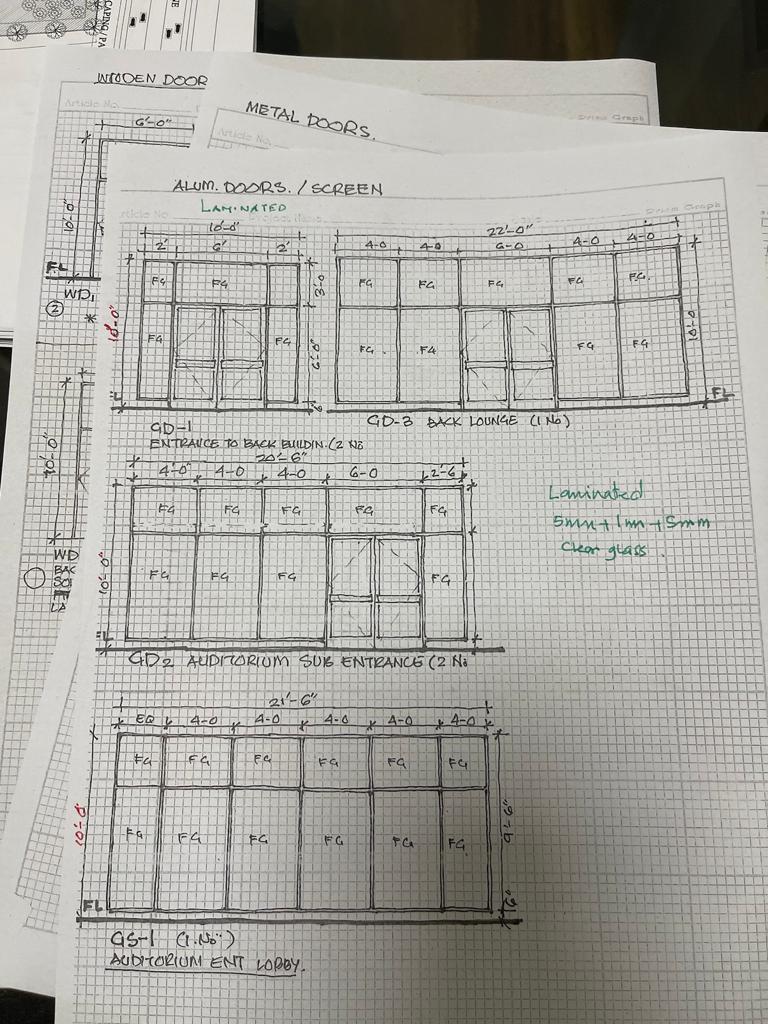 WOODEN DOOR
Article No.
6'-0"
10'-0"
FL
WD1
2
10'-0"
WD
BAC
LA
METAL DOORS.
Article No.
Graph
ALUM. DOORS. / SCREEN
LAMINATED
Article No.
Graph
10'-0"
2' 6' 2'
FG FG
FG FG
3'-0
6'-0"
6"
10'-0"
FL
GD-1
ENTRANCE TO BACK BUILDIN. (2 No
22'-0"
4-0 4-0 6-0 4-0 4-0
FG FG FG FG FG.
FG FG FG FG
10'-0
FL
GD-3 BACK LOUNGE (1 No)
20'-6"
4'-0" 4-0 4-0 6-0 2'-6
FG FG FG FG FG
FG FG FG FG
10'-0"
FL
GD2 AUDITORIUM SUB ENTRANCE (2 No
Laminated
5mm + 1mm + 5mm
Clear glass.
21'-6"
EQ 4-0 4-0 4-0 4-0 4-0
FG FG FG FG FG FG
FG FG FG FG FG FG
10'-0"
9'-6"
6"
FL
GS-1 (1.No)
AUDITORIUM ENT LOBBY.